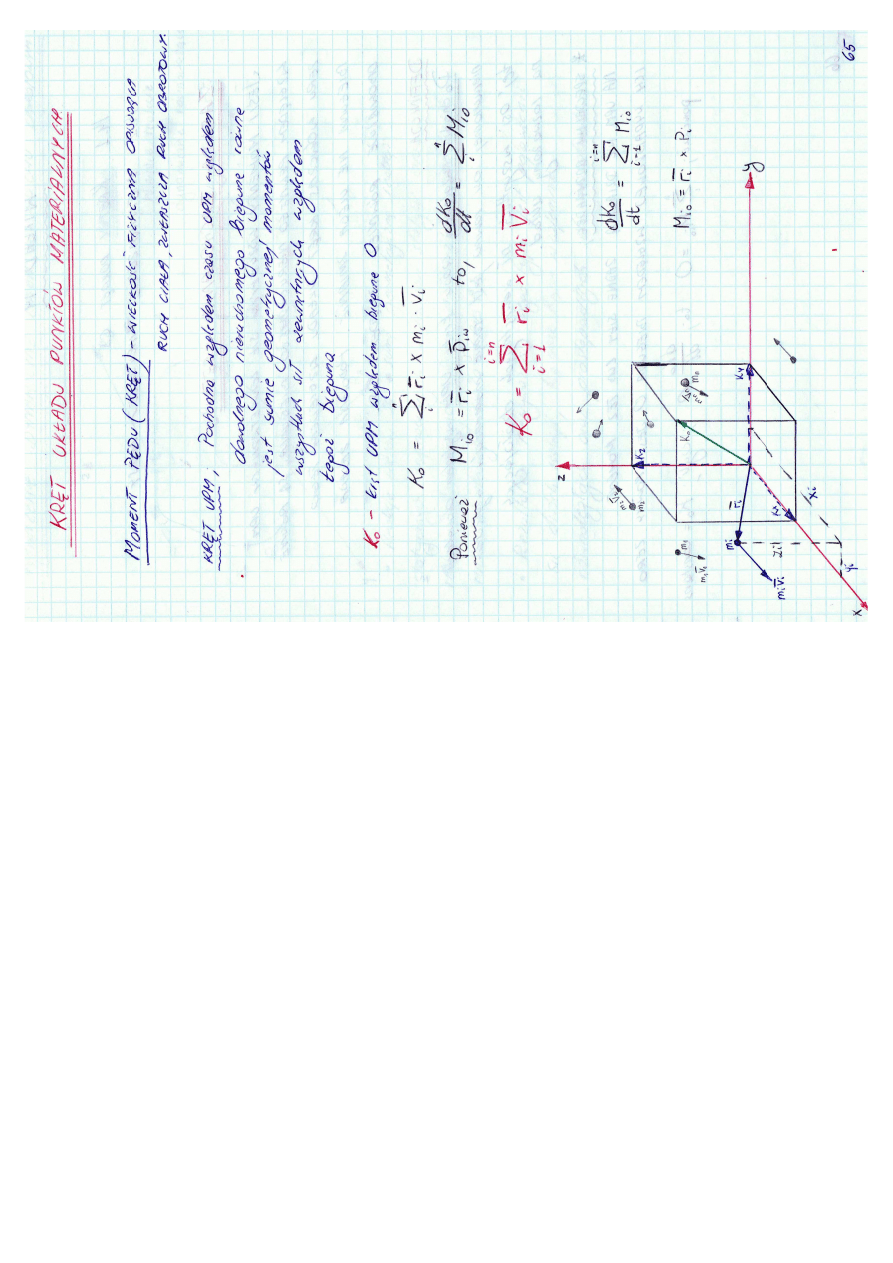 65
KRĘT UKŁADU PUNKTÓW MATERIALNYCH
MOMENT PĘDU (KRĘT) - WIELKOŚĆ FIZYCZNA OPISUJĄCA
RUCH CIAŁA, ZWŁASZCZA RUCH OBROTOWY.
KRĘT UPM, Pochodna względem czasu UPM względem
dowolnego nieruchomego bieguna równe
jest sumie geometrycznej momentów
wszystkich sił zewnętrznych względem
tegoż bieguna
K₀ - kręt UPM względem bieguna O
K₀ = Σⁿᵢ r̅ᵢ × mᵢ · V̅ᵢ
Ponieważ Mᵢ₀ = r̅ᵢ × P̅ᵢw to, dK₀/dt = Σⁿᵢ Mᵢ₀
K₀ = Σ i=n i=1 r̅ᵢ × mᵢ V̅ᵢ
dK₀/dt = Σ i=n i=1 Mᵢ₀
Mᵢ₀ = r̅ᵢ × Pᵢ
z
y
x
Kz
Ky
Kx
K₀
r̅ᵢ
mᵢ
mᵢV̅ᵢ
m₁
m₁V̅₁
m₂
m₂V̅₂
mₙ
zᵢ
xᵢ
yᵢ